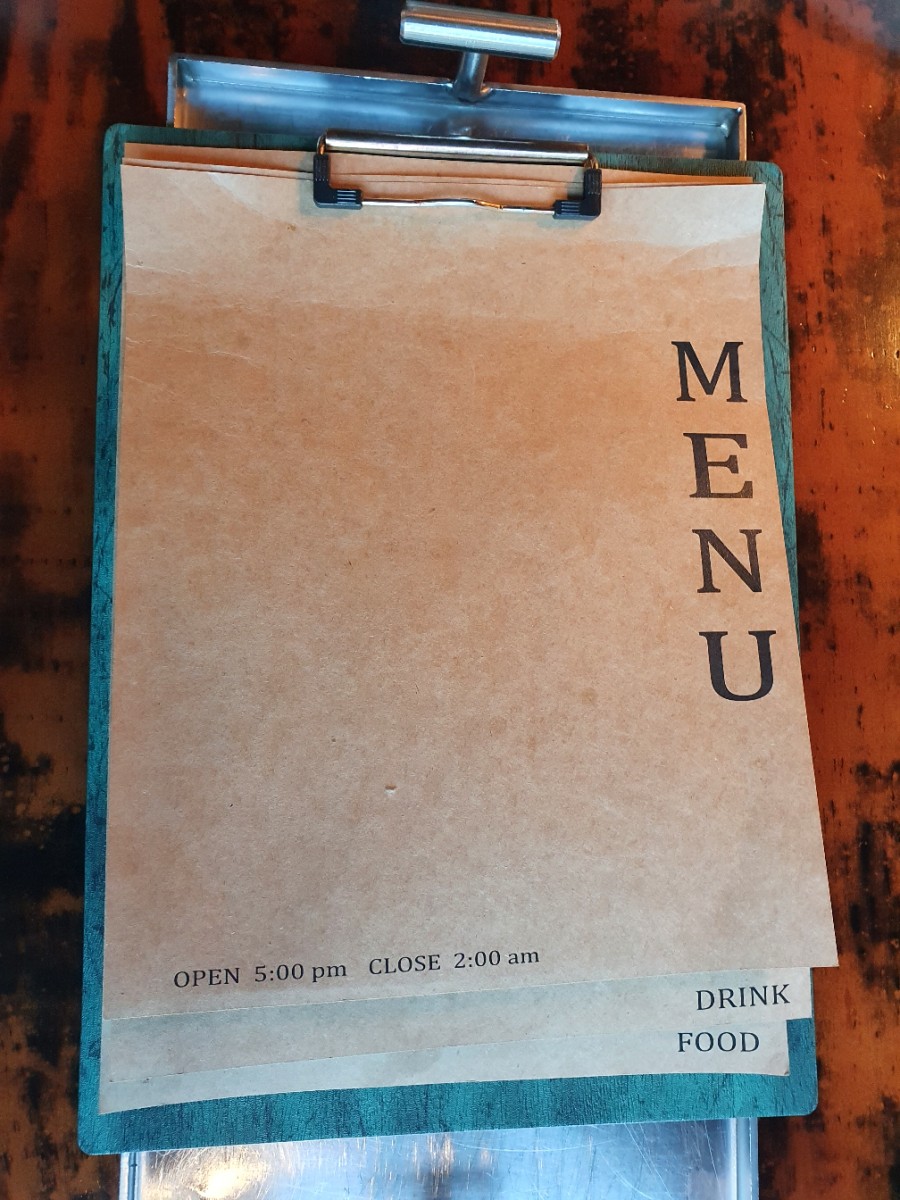 MENU
OPEN 5:00 pm CLOSE 2:00 am
DRINK
FOOD